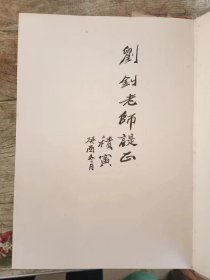 劉釗老師諟正
積寅
癸酉冬月